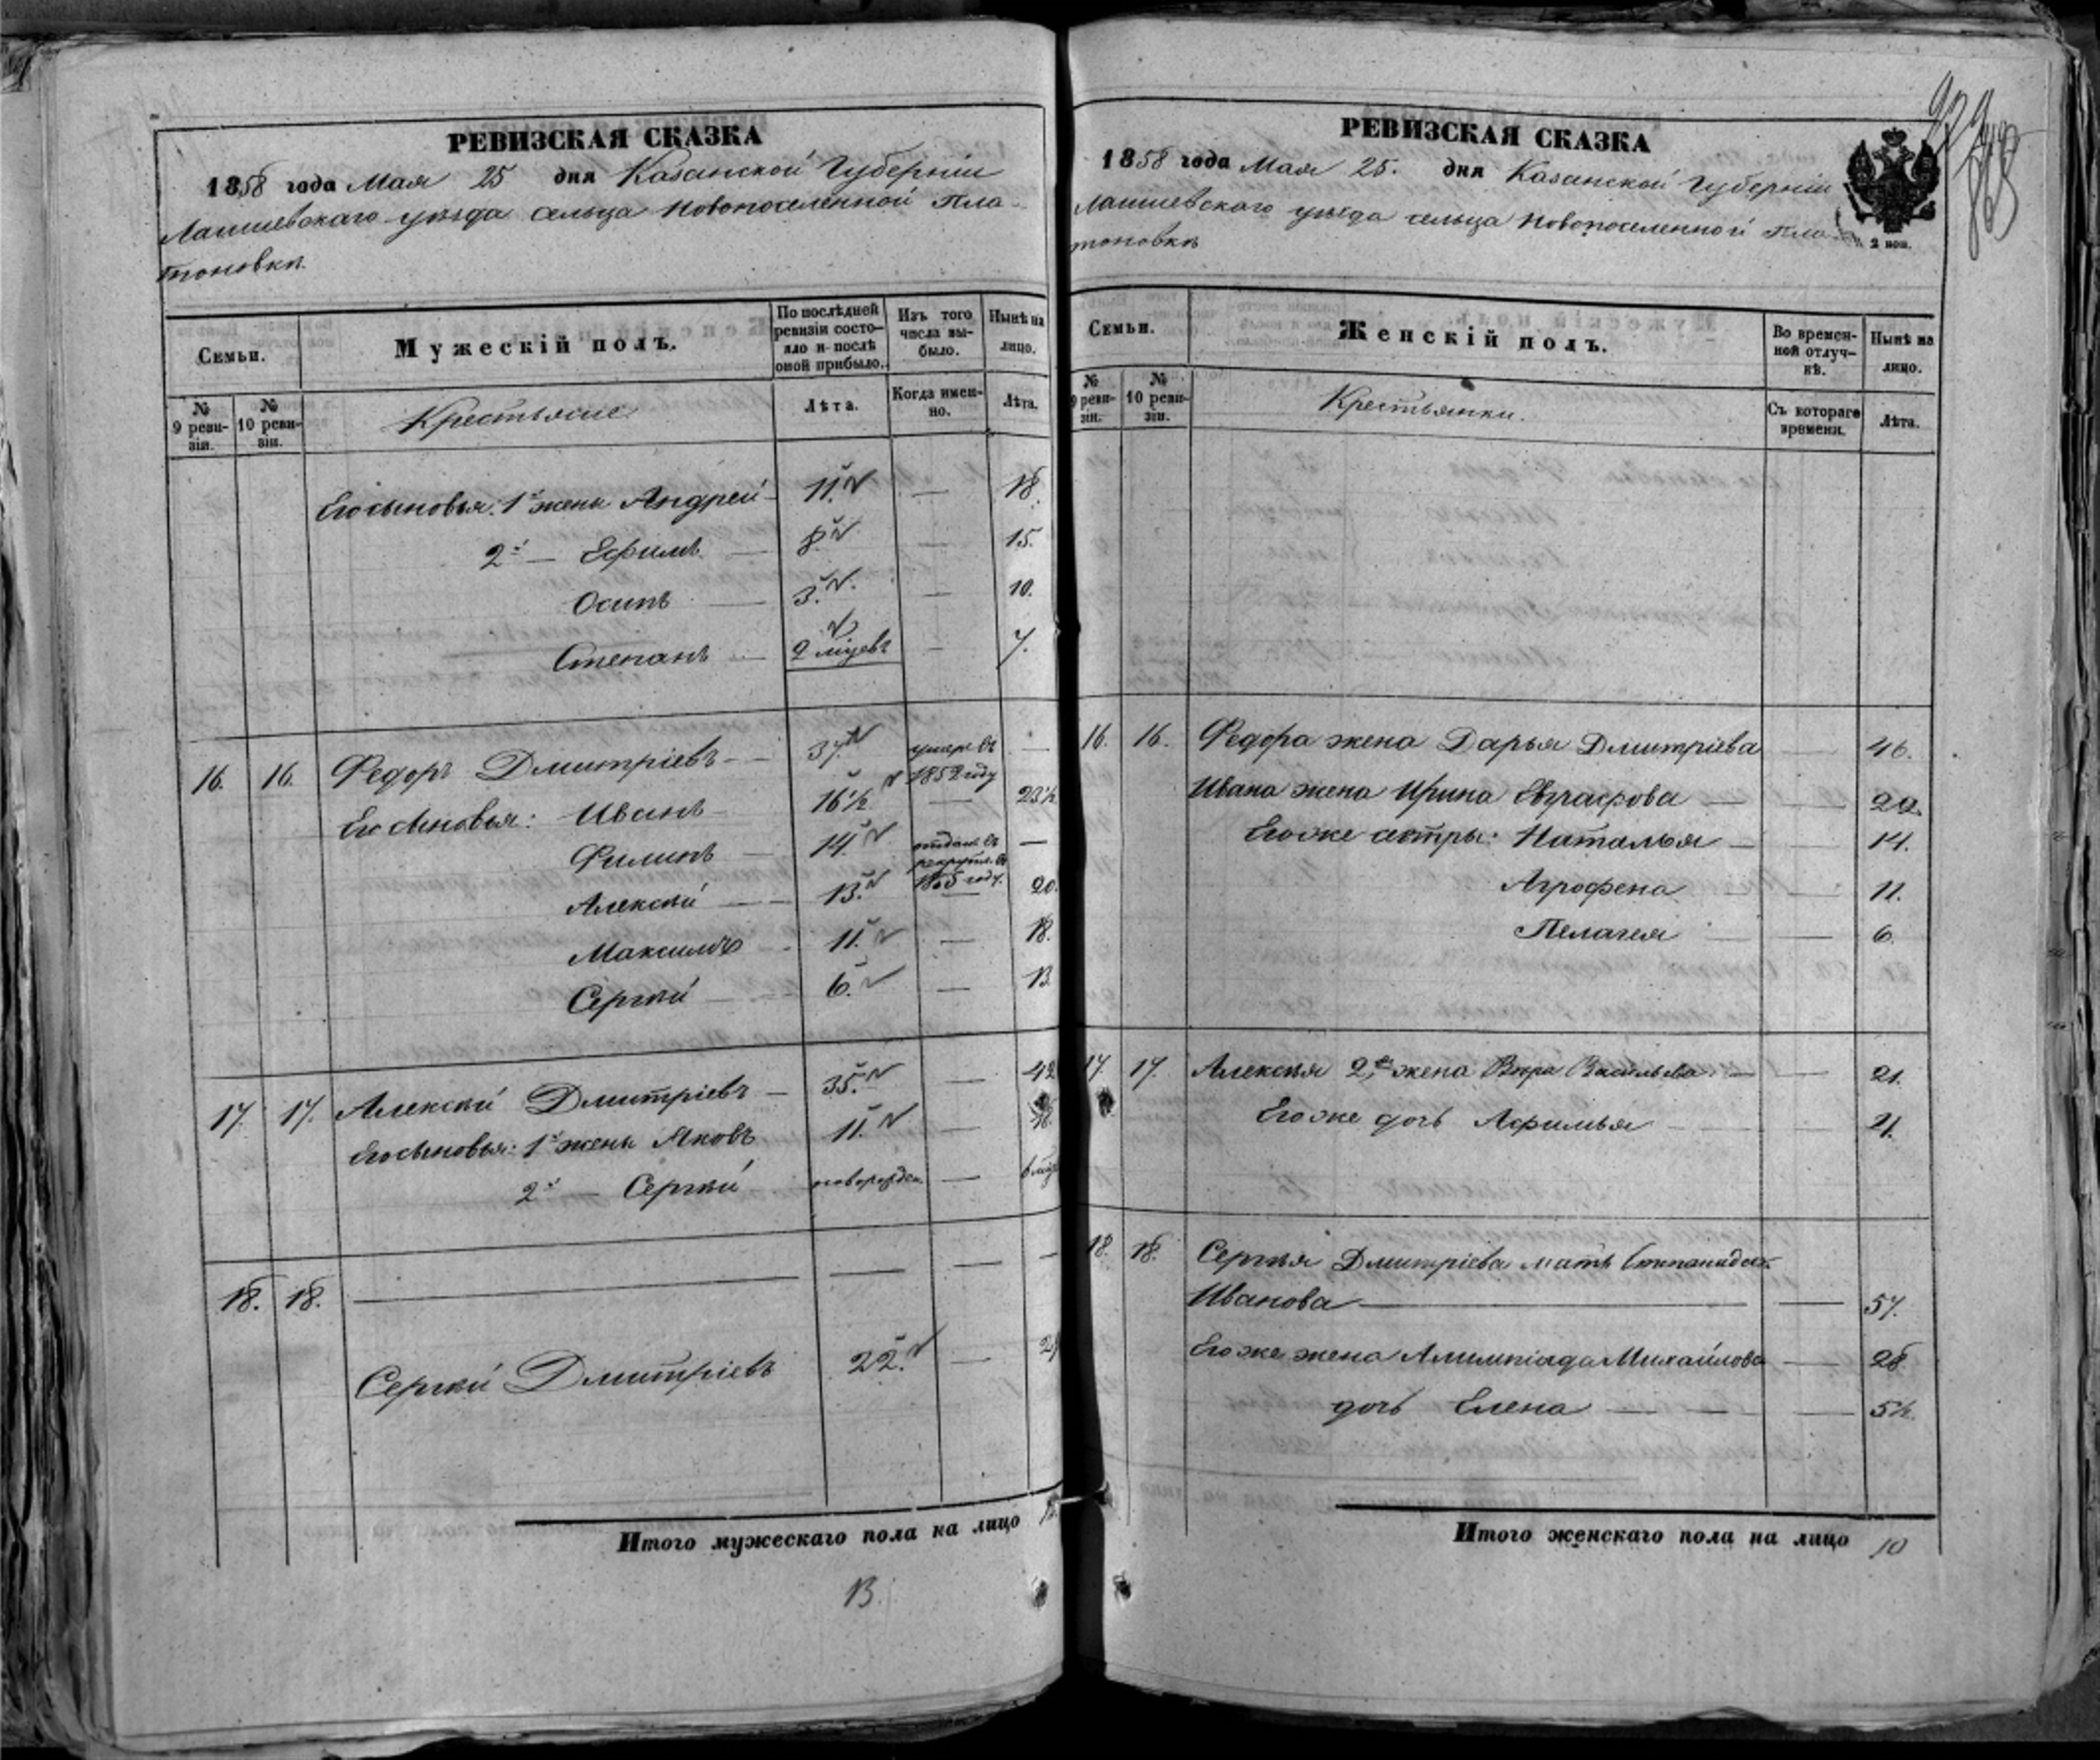 РЕВИЗСКАЯ СКАЗКА
1858 года Мая 25 дня Казанской Губерніи
Лаишевскаго уѣзда сельца Новопоселенной Пла-
тоновки.
Семьи.
Мужескій полъ.
По послѣдней ревизіи состояло и послѣ оной прибыло.
Изъ того числа выбыло.
Нынѣ на лицо.
№ 9 ревизіи.
№ 10 ревизіи.
Крестьяне
Лѣта.
Когда именно.
Лѣта.
Его сыновья: 1й жены Андрей — 11. — 18.
2й — Ефимъ — 8. — 15.
Осипъ — 3. — 10.
Степанъ — — 7.
16. 16. Федоръ Дмитріевъ — 37. умеръ въ 1852 году —
Его сыновья: Иванъ — 16½ — 23½
Филипъ — 14. отданъ въ рекруты въ 1855 году. —
Алексѣй — 13. — 20.
Максимъ — 11. — 18.
Сергѣй — 6. — 13
17. 17. Алексѣй Дмитріевъ — 35. — 42
Его сыновья: 1й жены Яковъ 11. — 18.
2й — Сергѣй новорожден. —
18. 18. — — — —
Сергѣй Дмитріевъ 22. —
Итого мужескаго пола на лицо
13.
РЕВИЗСКАЯ СКАЗКА
1858 года Мая 25. дня Казанской Губерніи
Лаишевскаго уѣзда сельца Новопоселенной Пла-
тоновки
2 коп.
Семьи.
Женскій полъ.
Во временной отлучкѣ.
Нынѣ на лицо.
№ 9 ревизіи.
№ 10 ревизіи.
Крестьянки.
Съ котораго времени.
Лѣта.
16. 16. Федора жена Дарья Дмитріева — 46.
Ивана жена Ирина Евграфова — — 22.
Его же сестры: Наталья — — 14.
Агрофена — — 11.
Пелагея — — 6.
17. 17. Алексѣя 2я жена Вѣра Васильева — — 21.
Его же дочь Афимья — —
18. 18. Сергѣя Дмитріева мать Степанида
Иванова — — 57.
Его же жена Алимпіада Михайлова — 28
дочь Елена — — — 5½.
Итого женскаго пола на лицо 10